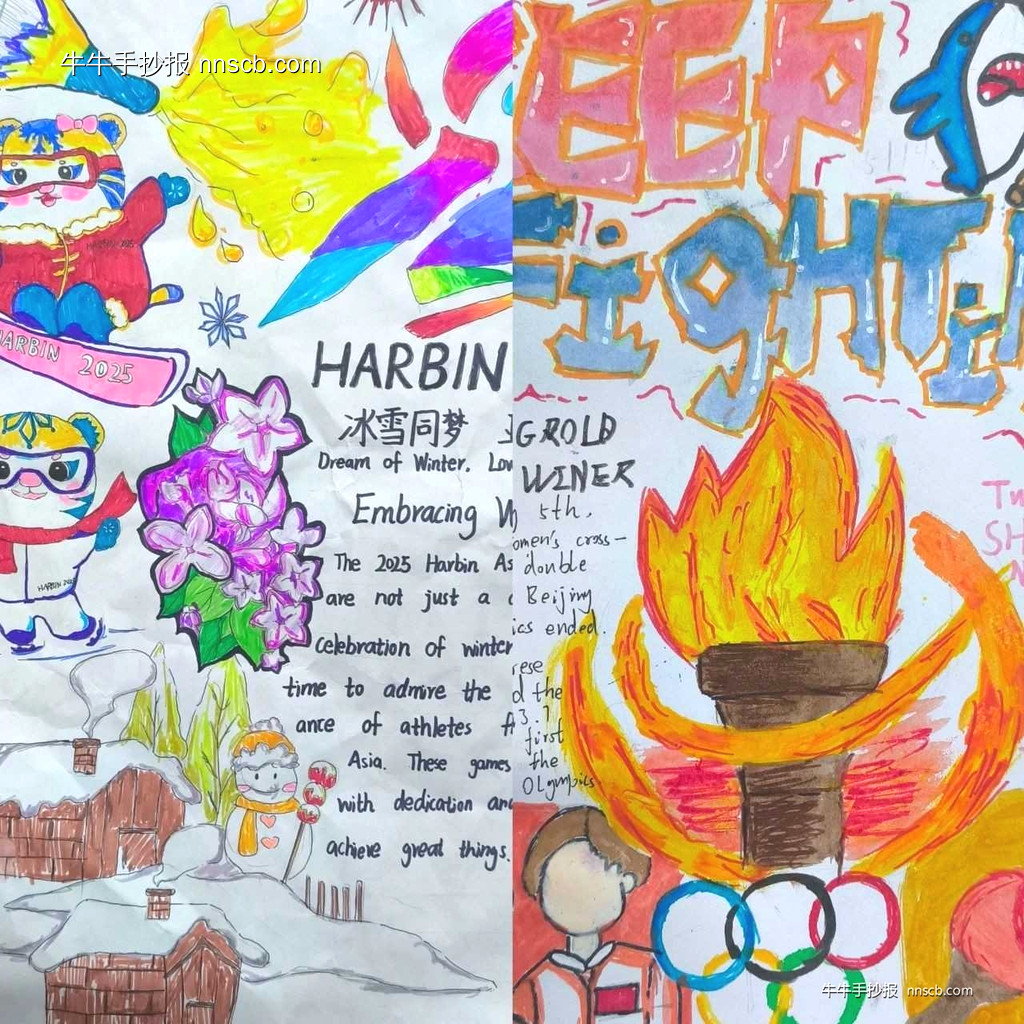 牛牛手抄报 nnscb.com
HARBIN 2025
HARBIN 2025
HARBIN 2025
HARBIN
冰雪同梦
Dream of Winter. Lov
Embracing W
The 2025 Harbin As
are not just a c
celebration of winter
time to admire the
ance of athletes
Asia. These games
with dedication and
achieve great things.
EEP
FigHTiN
GROLD
WINER
5th,
omen's cross-
double
Beijing
ics ended.
rese
d the
3.7
first
the
OLympics
SH
牛牛手抄报 nnscb.com